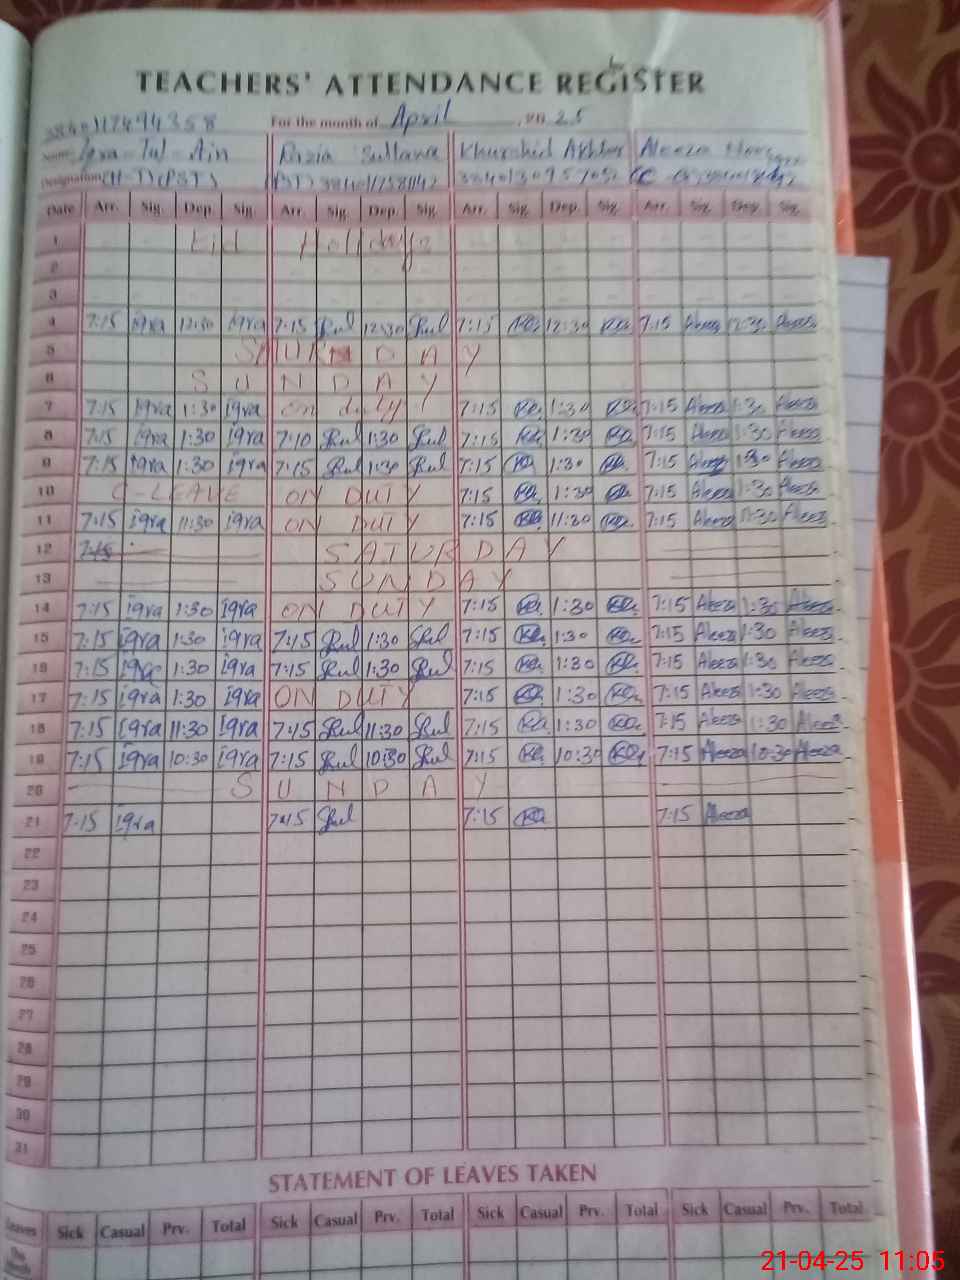 TEACHERS' ATTENDANCE REGISTER
For the month of April 20 25
Name Iqra-Tul-Ain Razia Sultana Khurshid Akhter Aleeza
Designation (H-T) (PST)
Date Arr. Sig. Dep. Sig. Arr. Sig. Dep. Sig. Arr. Sig. Dep. Sig. Arr. Sig. Dep. Sig.
1 Eid Holidays
2
3
4 7:15 iqra 12:30 iqra 7:15 12:30 7:15 12:30 7:15 Aleeza 12:30 Aleeza
5 SATURDAY
6 SUNDAY
7 7:15 iqra 1:30 iqra on duty 7:15 1:30 7:15 Aleeza 1:30 Aleeza
8 7:15 iqra 1:30 iqra 7:10 1:30 7:15 1:30 7:15 Aleeza 1:30 Aleeza
9 7:15 iqra 1:30 iqra 7:15 1:30 7:15 1:30 7:15 Aleeza 1:30 Aleeza
10 C-LEAVE ON DUTY 7:15 1:30 7:15 Aleeza 1:30 Aleeza
11 7:15 iqra 11:30 iqra ON DUTY 7:15 11:30 7:15 Aleeza 11:30 Aleeza
12 7:15 SATURDAY
13 SUNDAY
14 7:15 iqra 1:30 iqra ON DUTY 7:15 1:30 7:15 Aleeza 1:30 Aleeza
15 7:15 iqra 1:30 iqra 7:15 1:30 7:15 1:30 7:15 Aleeza 1:30 Aleeza
16 7:15 iqra 1:30 iqra 7:15 1:30 7:15 1:30 7:15 Aleeza 1:30 Aleeza
17 7:15 iqra 1:30 iqra ON DUTY 7:15 1:30 7:15 Aleeza 1:30 Aleeza
18 7:15 iqra 11:30 iqra 7:15 11:30 7:15 1:30 7:15 Aleeza 1:30 Aleeza
19 7:15 iqra 10:30 iqra 7:15 10:30 7:15 10:30 7:15 Aleeza 10:30 Aleeza
20 SUNDAY
21 7:15 iqra 7:15 7:15 7:15 Aleeza
22
23
24
25
26
27
28
29
30
31
STATEMENT OF LEAVES TAKEN
Leaves Sick Casual Prv. Total Sick Casual Prv. Total Sick Casual Prv. Total Sick Casual Prv. Total
21-04-25 11:05